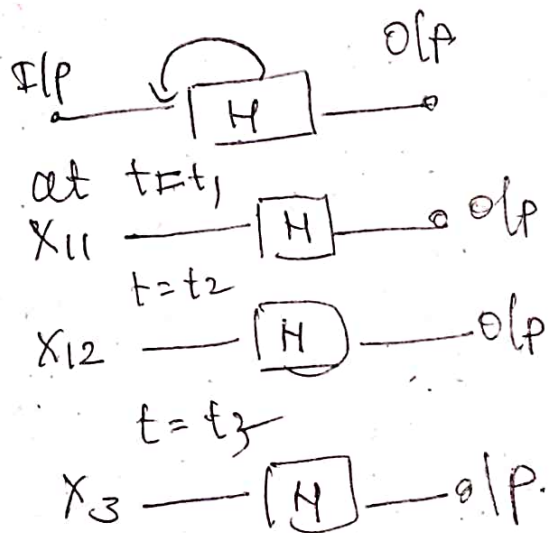 I/p O/p
H
at t=t1
X11 H O/p
t=t2
X12 H O/p
t=t3
X3 H o/p.